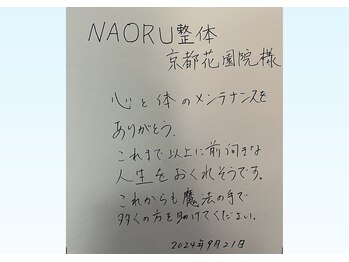 NAORU整体
京都花園院様
心と体のメンテナンスを
ありがとう。
これまで以上に前向きな
人生をおくれそうです。
これからも魔法の手で
多くの方を助けてください。
2024年9月21日